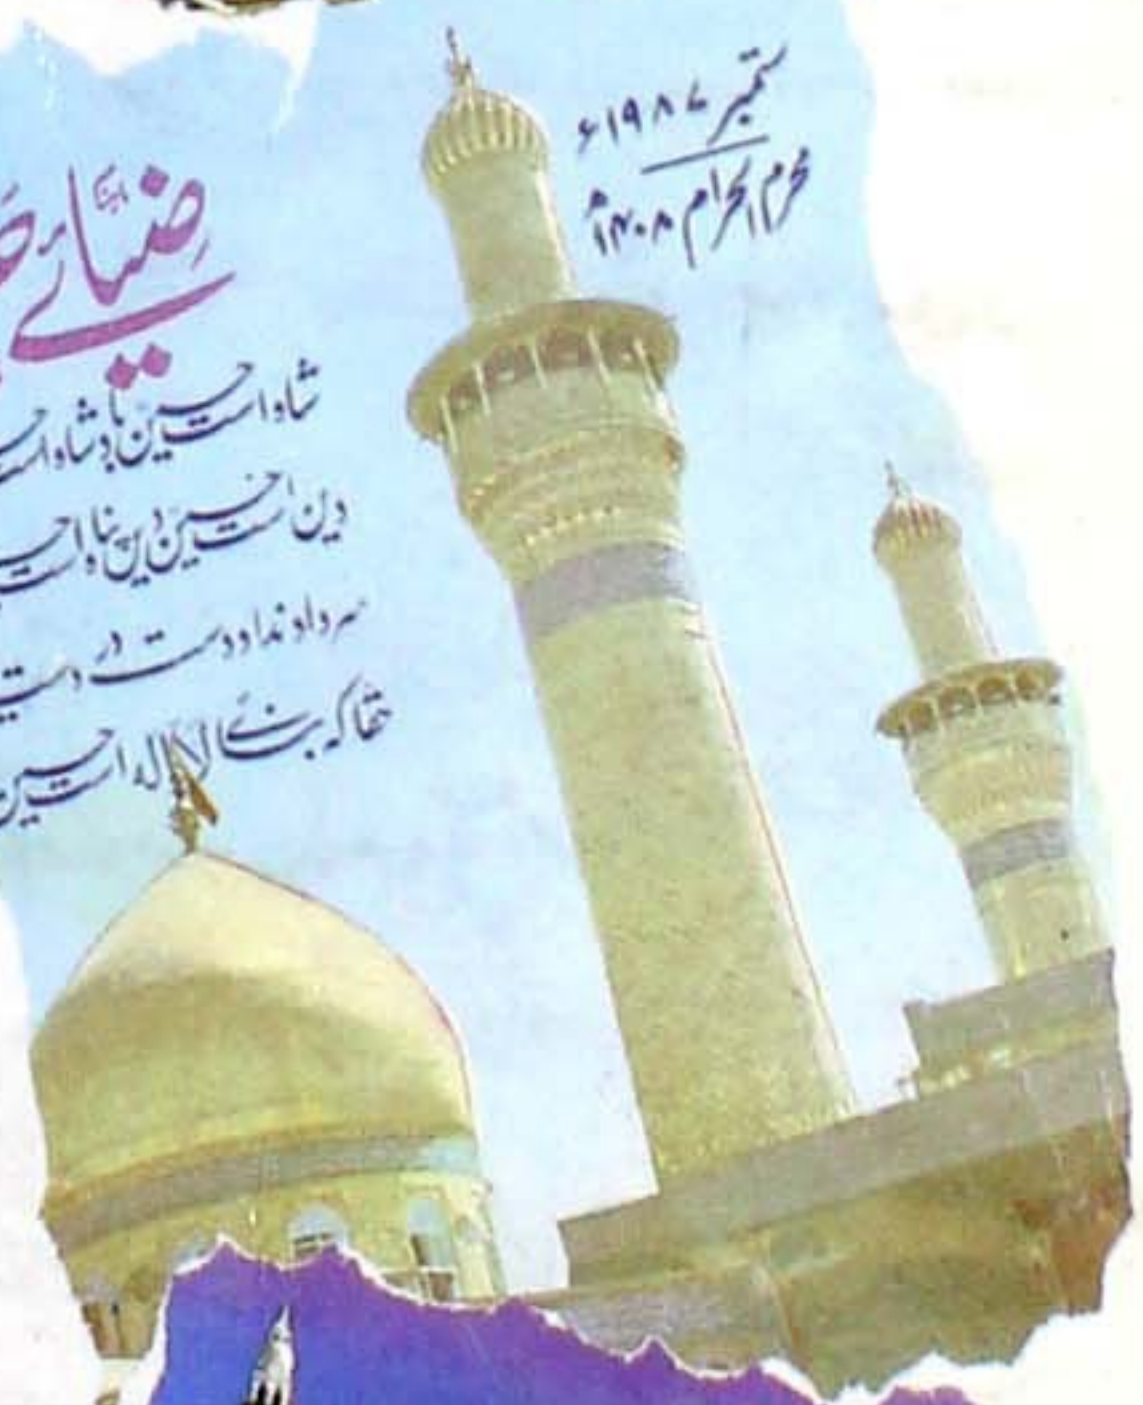 ستمبر ۱۹۸۷ء
محرم الحرام ۱۴۰۸ھ
ضیائے
شاہ است حسین بادشاہ است
دین است حسین دین پناہ است
سرداد نداد دست در دست
حقا کہ بنائے لا الہ است حسین